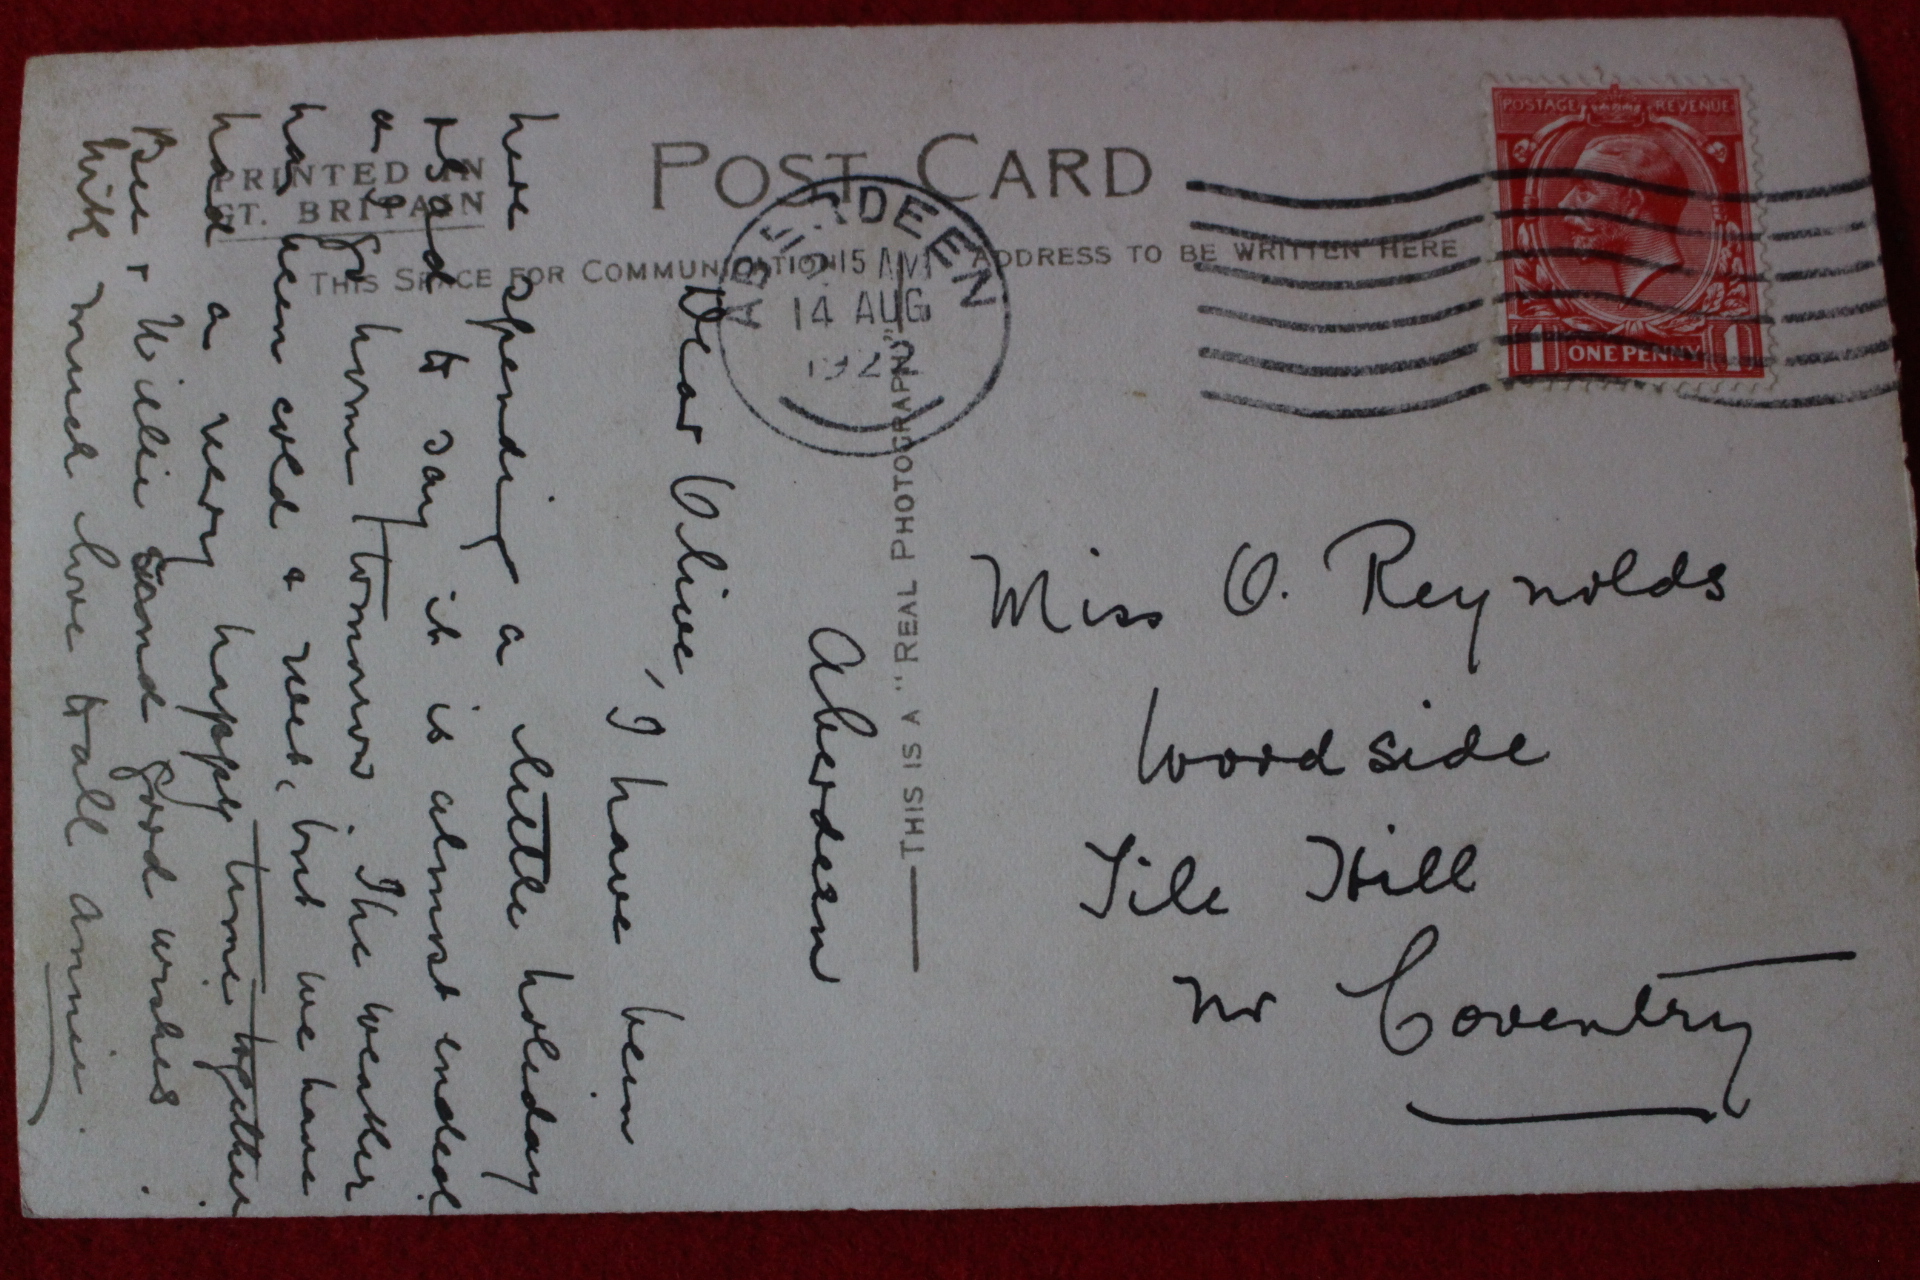 POST CARD
PRINTED IN
GT. BRITAIN
THIS SPACE FOR COMMUNICATION
ADDRESS TO BE WRITTEN HERE
ABERDEEN
15 AM
14 AUG
192
POSTAGE REVENUE
1 ONE PENNY 1
THIS IS A "REAL PHOTOGRAPH"
Aberdeen
Dear Olive,
I have been
here spending a little holiday
& sad to say it is almost ended
as go home tomorrow. The weather
has been cold & wet, but we have
had a very happy time together.
Bee & Willie send good wishes.
With much love to all Annie.
Miss O. Reynolds
Woodside
Tile Hill
Nr Coventry